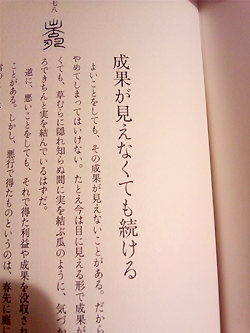 七八
成果が見えなくても続ける
よいことをしても、その成果が見えないことがある。だから
やめてしまってはいけない。たとえ今は目に見える形で成果が
くても、草むらに隠れ知らぬ間に実を結ぶ瓜のように、気づか
ろできちんと実を結んでいるはずだ。
逆に、悪いことをしても、それで得た利益や成果を没収され
ことがある。しかし、悪行で得たものというのは、春先に庭に